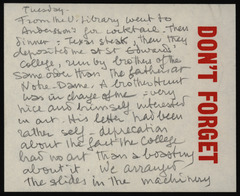 Tuesday.
From the U. library went to
Anderson's for cocktail. Then
dinner - Texas steak, then they
deposited me at St Edwards
College, run by brothers of the
same order than the fathers at
Notre-Dame. A brother Hunt
was in charge of me = very
nice and himself interested
in art. His letter had been
rather self-deprecation
about the fact the College
had no art than a boasting
about it. We arranged
The slides in the machinery
DON'T FORGET